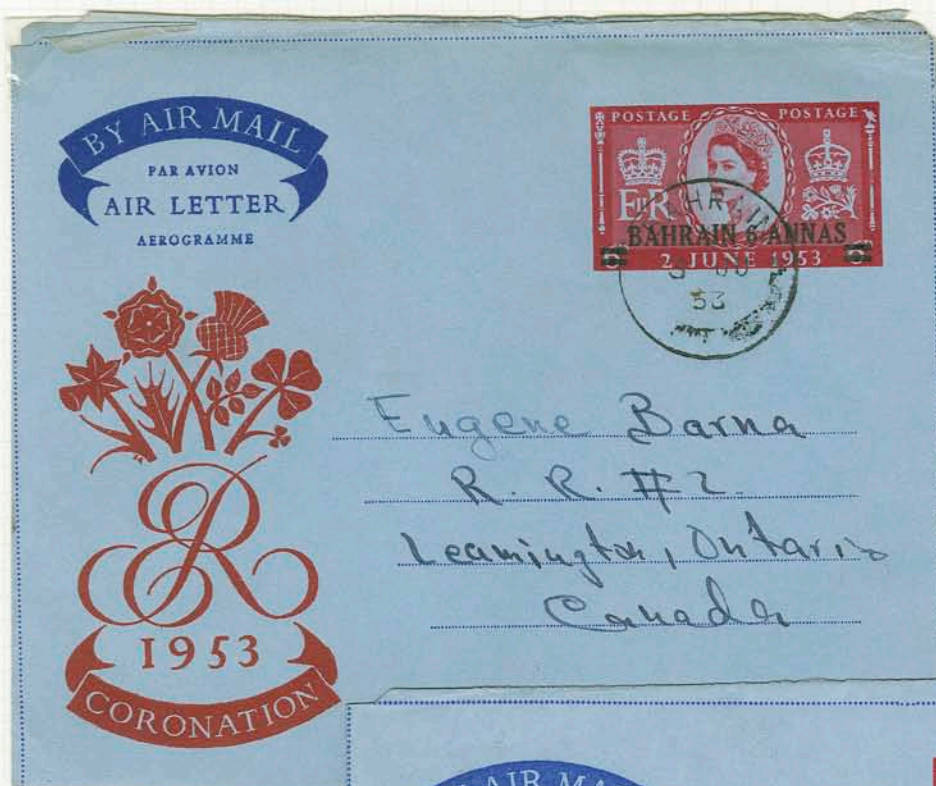 BY AIR MAIL
PAR AVION
AIR LETTER
AEROGRAMME
POSTAGE POSTAGE
EIIR
BAHRAIN 6 ANNAS
2 JUNE 1953
BAHRAIN
53
Eugene Barna
R. R. #2.
Leamington, Ontario
Canada
ER
1953
CORONATION
AIR MA